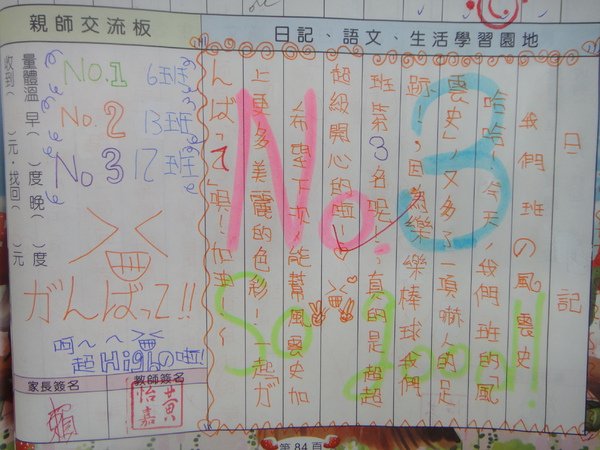 親師交流板
日記、語文、生活學習園地
量體溫 早( )度 晚( )度
收到( )元 找回( )元
NO.1 6班
No.2 13班
No 3 12班
がんばって!!
超Highの啦!
家長簽名
教師簽名
賴
黃怡嘉
日記
我們班の風雲史
哈哈!今天,我們班的「風
雲史」,又多了一項嚇人的足
跡!因為樂樂棒球我們
班第3名呢!真的是超超
超級開心的啦!
希望下次,能幫風雲史加
上更多美麗的色彩!一起が
んばって」唄!加油!
No.3
So good!!
第84頁